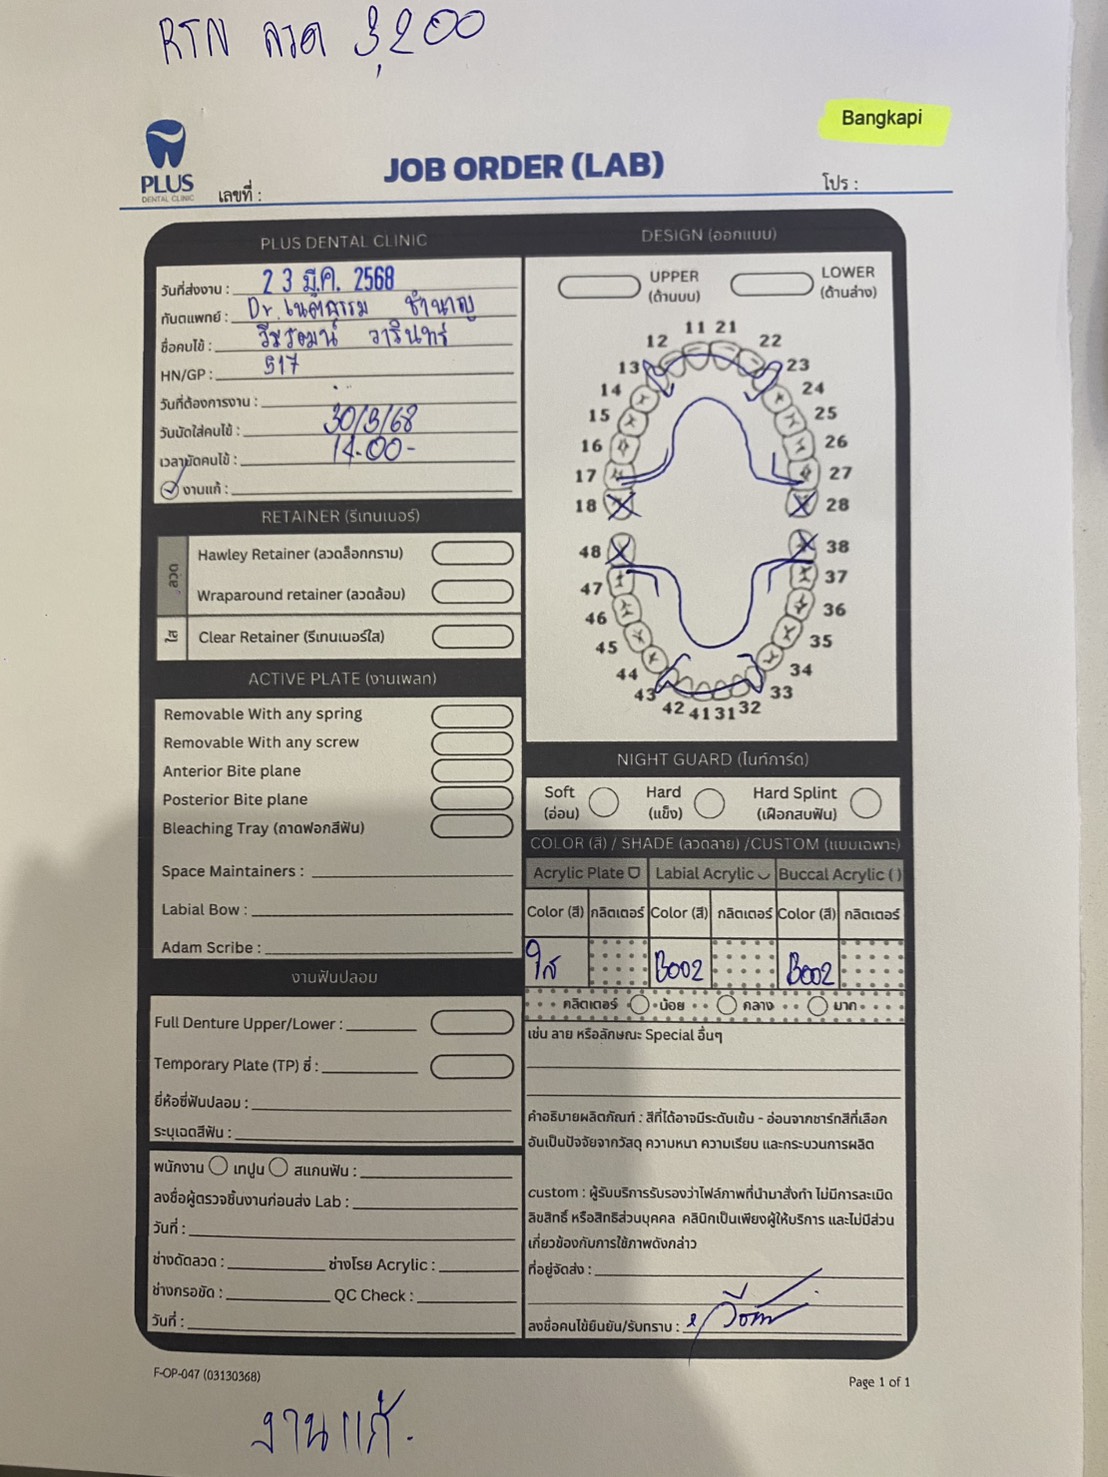 RTN ลวด 3,200
Bangkapi
PLUS
DENTAL CLINIC
เลขที่ :
JOB ORDER (LAB)
โปร :
PLUS DENTAL CLINIC
วันที่ส่งงาน : 23 มี.ค. 2568
ทันตแพทย์ : Dr. เนติธรรม ชำนาญ
ชื่อคนไข้ : วีรวัฒน์ วารินทร์
HN/GP : 517
วันที่ต้องการงาน :
วันนัดใส่คนไข้ : 30/3/68
เวลานัดคนไข้ : 14.00-
งานแก้ :
RETAINER (รีเทนเนอร์)
ลวด
Hawley Retainer (ลวดล็อกกราม)
Wraparound retainer (ลวดล้อม)
ใส
Clear Retainer (รีเทนเนอร์ใส)
ACTIVE PLATE (งานเพลท)
Removable With any spring
Removable With any screw
Anterior Bite plane
Posterior Bite plane
Bleaching Tray (ถาดฟอกสีฟัน)
Space Maintainers :
Labial Bow :
Adam Scribe :
งานฟันปลอม
Full Denture Upper/Lower :
Temporary Plate (TP) ซี่ :
ยี่ห้อซี่ฟันปลอม :
ระบุเฉดสีฟัน :
พนักงาน เทปูน สแกนฟัน :
ลงชื่อผู้ตรวจชิ้นงานก่อนส่ง Lab :
วันที่ :
ช่างดัดลวด : ช่างโรย Acrylic :
ช่างกรอขัด : QC Check :
วันที่ :
DESIGN (ออกแบบ)
UPPER
(ด้านบน)
LOWER
(ด้านล่าง)
11 21
12 22
13 23
14 24
15 25
16 26
17 27
18 28
48 38
47 37
46 36
45 35
44 34
43 33
42 41 31 32
NIGHT GUARD (ไนท์การ์ด)
Soft
(อ่อน)
Hard
(แข็ง)
Hard Splint
(เฝือกสบฟัน)
COLOR (สี) / SHADE (ลวดลาย) /CUSTOM (แบบเฉพาะ)
Acrylic Plate Labial Acrylic Buccal Acrylic ( )
Color (สี) กลิตเตอร์ Color (สี) กลิตเตอร์ Color (สี) กลิตเตอร์
ใส B002 B002
กลิตเตอร์ น้อย กลาง มาก
เช่น ลาย หรือลักษณะ Special อื่นๆ
คำอธิบายผลิตภัณฑ์ : สีที่ได้อาจมีระดับเข้ม - อ่อนจากชาร์ทสีที่เลือก
อันเป็นปัจจัยจากวัสดุ ความหนา ความเรียบ และกระบวนการผลิต
custom : ผู้รับบริการรับรองว่าไฟล์ภาพที่นำมาสั่งทำ ไม่มีการละเมิด
ลิขสิทธิ์ หรือสิทธิส่วนบุคคล คลินิกเป็นเพียงผู้ให้บริการ และไม่มีส่วน
เกี่ยวข้องกับการใช้ภาพดังกล่าว
ที่อยู่จัดส่ง :
ลงชื่อคนไข้ยืนยัน/รับทราบ :
F-OP-047 (03130368)
Page 1 of 1
งานแก้.